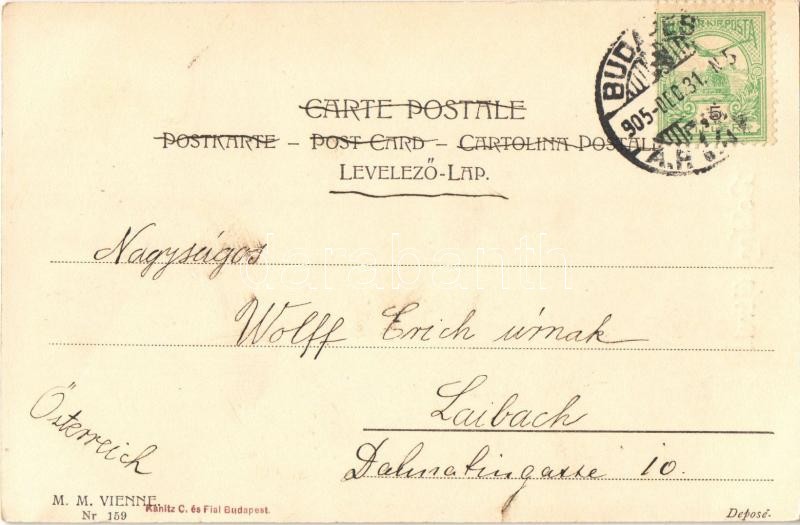 CARTE POSTALE
POSTKARTE – POST CARD – CARTOLINA POSTALE
LEVELEZŐ-LAP.
BUDAPES
905-DEC.31.
5
Nagyságos
darabanth
Wolff Erich úrnak
Laibach
Österreich
Dalmatingasse 10.
M. M. VIENNE
Nr 159
Kanitz C. és Fiai Budapest.
Deposé.